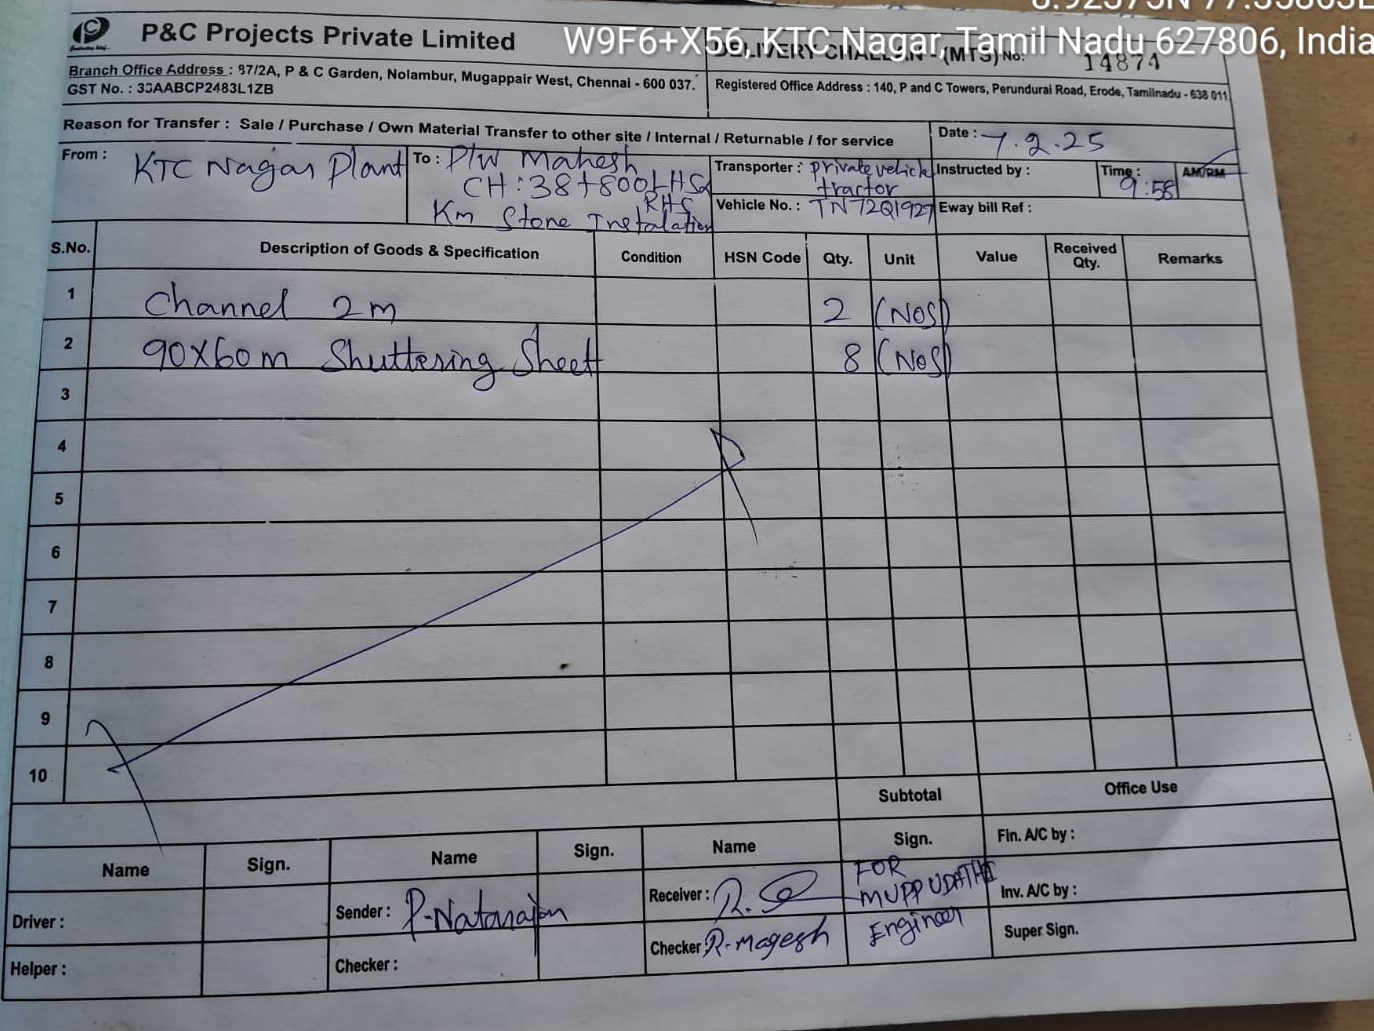 P&C Projects Private Limited
W9F6+X56, KTC Nagar, Tamil Nadu 627806, India
DELIVERY CHALLAN - (MTS) No: 14874
Branch Office Address : 87/2A, P & C Garden, Nolambur, Mugappair West, Chennai - 600 037.
GST No. : 33AABCP2483L1ZB
Registered Office Address : 140, P and C Towers, Perundurai Road, Erode, Tamilnadu - 638 011
Reason for Transfer : Sale / Purchase / Own Material Transfer to other site / Internal / Returnable / for service
Date : 7.2.25
From : KTC Nagar Plant
To : P/W Mahesh
CH : 38+800 LHS
RHS
Km Stone Instalation
Transporter : private vehicle
tractor
Vehicle No. : TN72Q1927
Instructed by :
Time : 9:58
AM/PM
Eway bill Ref :
S.No. Description of Goods & Specification Condition HSN Code Qty. Unit Value Received Qty. Remarks
1 Channel 2m 2 (Nos)
2 90X60m Shuttering Sheet 8 (Nos)
3
4
5
6
7
8
9
10
Subtotal
Office Use
Name Sign. Name Sign. Name Sign.
Fin. A/C by :
Driver :
Sender : P-Natarajan
Receiver :
FOR
MUPPUDATHI
Engineer
Inv. A/C by :
Helper :
Checker :
Checker R-magesh
Super Sign.